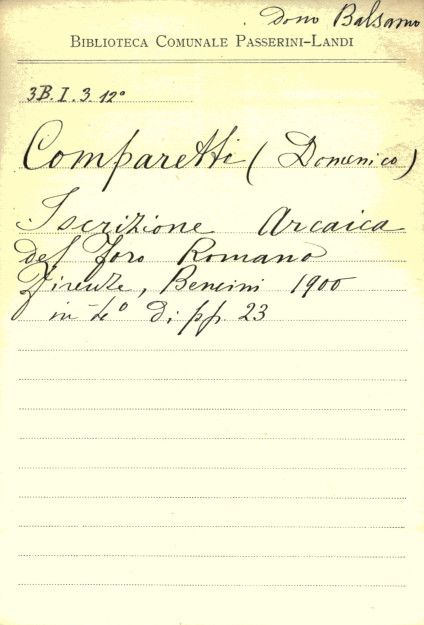 dono Balsamo
BIBLIOTECA COMUNALE PASSERINI-LANDI
3B. I. 3. 12°
Comparetti (Domenico)
Iscrizione Arcaica
del Foro Romano
Firenze, Bencini 1900
in 4° di pp. 23